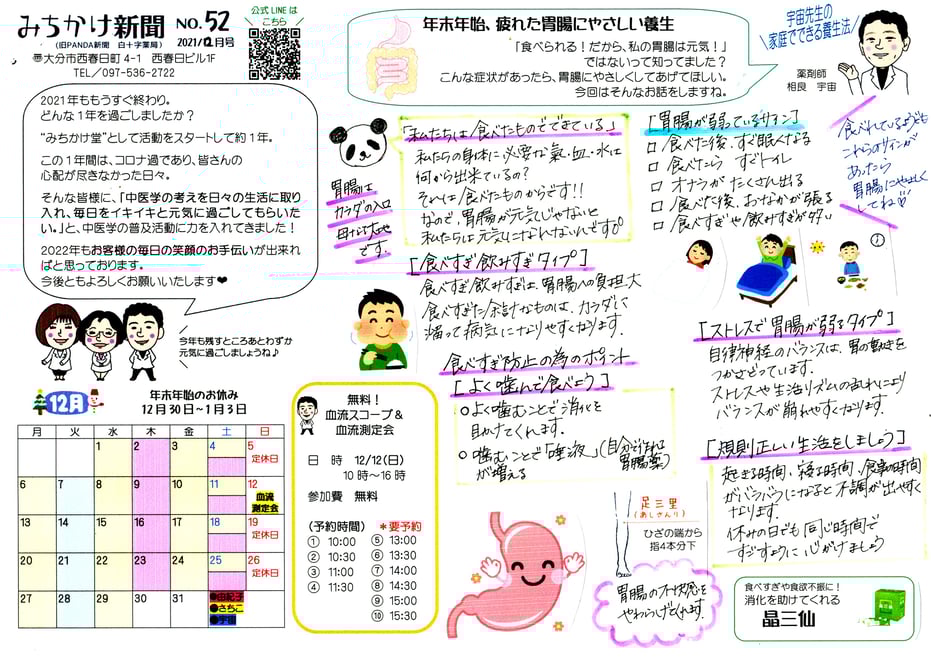 みちかけ新聞 NO.52
(旧PANDA新聞 白十字薬局) 2021/12月号
〠大分市西春日町4-1 西春日ビル1F
TEL／097-536-2722
公式LINEは
こちら
年末年始、疲れた胃腸にやさしい養生
「食べられる！だから、私の胃腸は元気！」
ではないって知ってました？
こんな症状があったら、胃腸にやさしくしてあげてほしい。
今回はそんなお話をしますね。
宇宙先生の
家庭でできる養生法
薬剤師
相良 宇宙
2021年ももうすぐ終わり。
どんな1年を過ごしましたか？
“みちかけ堂”として活動をスタートして約1年。
この1年間は、コロナ過であり、皆さんの
心配が尽きなかった日々。
そんな皆様に、「中医学の考えを日々の生活に取り
入れ、毎日をイキイキと元気に過ごしてもらいた
い。」と、中医学の普及活動に力を入れてきました！
2022年もお客様の毎日の笑顔のお手伝いが出来れ
ばと思っております。
今後ともよろしくお願いいたします❤
今年も残すところあとわずか
元気に過ごしましょうね♪
胃腸は
カラダの入口
です。
「私たちは食べたものでできている」
私たちの身体に必要な氣・血・水は
何から出来ているの？
それは食べたものからです!!
なので、胃腸が元気じゃないと
私たちは元気になれないんです。
[胃腸が弱っているサイン]
□ 食べた後、すぐ眠くなる
□ 食べたら すぐトイレ
□ オナラが たくさん出る
□ 食べた後、おなかが張る
□ 食べすぎや飲みすぎが多い
食べれているようでも
これらのサインが
あったら
胃腸にやさしく
してね♡
[食べすぎ飲みすぎタイプ]
食べすぎ飲みすぎは、胃腸への負担大
食べすぎた余計なものは、カラダに
溜って病気になりやすくなります。
食べすぎ防止の為のポイント
[よく噛んで食べよう]
○よく噛むことで消化を
助けてくれます。
○噛むことで「唾液」(自分で作れる胃腸薬)
が増える
[ストレスで胃腸が弱るタイプ]
自律神経のバランスは、胃の動きを
つかさどっています。
ストレスや生活リズムの乱れにより
バランスが崩れやすくなります。
[規則正しい生活をしましょう]
起きる時間、寝る時間、食事の時間
がバラバラになると不調が出やすく
なります。
休みの日でも同じ時間で
すごすように心がけましょう
足三里
(あしさんり)
ひざの端から
指4本分下
胃腸の不快感を
やわらげてくれます。
食べすぎや食欲不振に！
消化を助けてくれる
晶三仙
12月
年末年始のお休み
12月30日～1月3日
月 火 水 木 金 土 日
1 2 3 4 5
定休日
6 7 8 9 10 11 12
血流
測定会
13 14 15 16 17 18 19
定休日
20 21 22 23 24 25 26
定休日
27 28 29 30 31
●由紀子
●さちこ
●宇宙
無料！
血流スコープ＆
血流測定会
日 時 12/12(日)
10時～16時
参加費 無料
(予約時間) ＊要予約
① 10:00 ⑤ 13:00
② 10:30 ⑥ 13:30
③ 11:00 ⑦ 14:00
④ 11:30 ⑧ 14:30
⑨ 15:00
⑩ 15:30